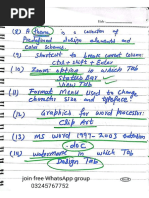 Date:
(8) A theme is a collection of
Predefined design elements and
color schemes.
(9) Shortcut to break current column
ctrl + shift + Enter
(10) Zoom option is which Tab
Status Bar
View Tab
(11) Format menu used to change
character size and typeface?
(12) Graphics for word processor:
Clip Art
(13) MS word 1997-2003 extention
.doc
(14) watermark in which Tab
Design Tab
join free WhatsApp group
03245767752